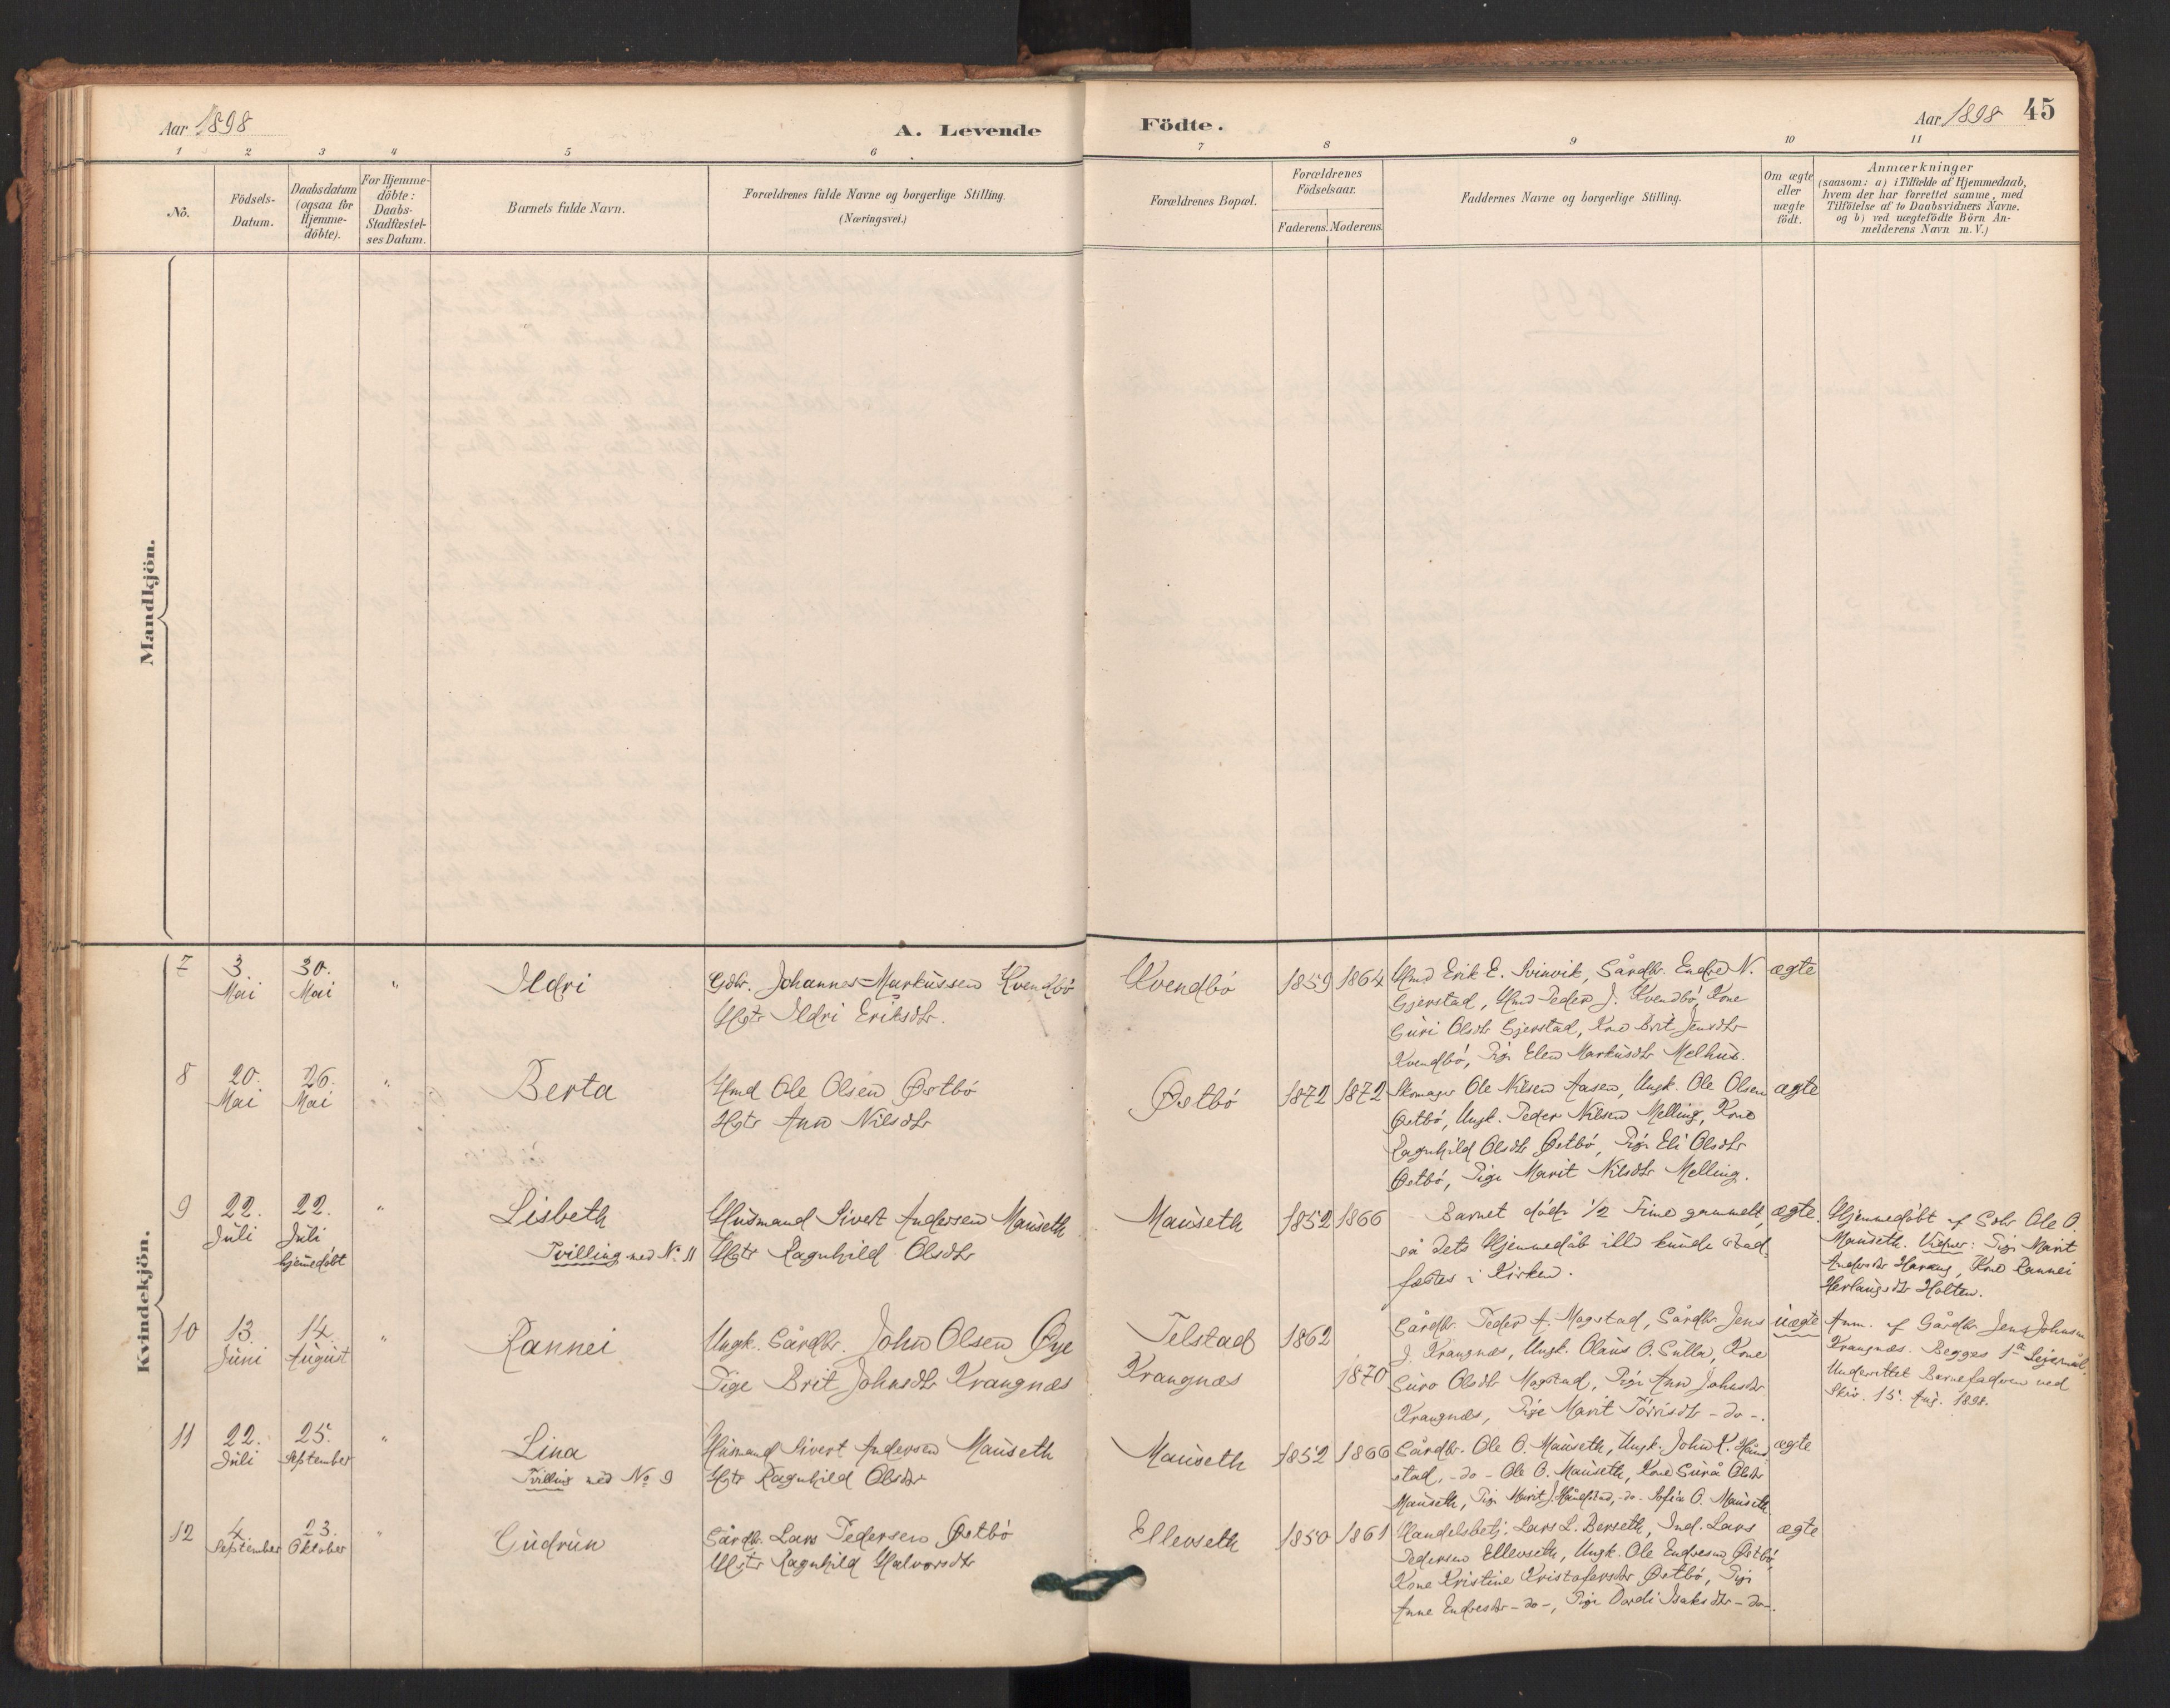 Aar 1898
A. Levende
Födte.
Aar 1898
45
1 2 3 4 5 6 7 8 9 10 11
No.
Födsels-
Datum.
Daabsdatum
(ogsaa for
Hjemme-
döbte).
For Hjemme-
döbte:
Daabs-
Stadfæstel-
ses Datum.
Barnets fulde Navn.
Forældrenes fulde Navne og borgerlige Stilling.
(Næringsvei.)
Forældrenes Bopæl.
Forældrenes
Födselsaar.
Faderens. Moderens.
Faddernes Navne og borgerlige Stilling.
Om ægte
eller
uægte
födt.
Anmærkninger
(saasom: a) i Tilfælde af Hjemmedaab,
hvem der har forrettet samme, med
Tilföielse af to Daabsvidners Navne.
og b) ved uægtefödte Börn An-
melderens Navn m. V.)
Mandkjön.
Kvindekjön.
7
3.
Mai
30.
Mai
"
Ildri
Gdbr. Johannes Markussen Kvendbö
Hstr Ildri Eriksdtr.
Kvendbö
1859
1864
Hmd Erik E. Svinvik, Gårdbr. Endre N.
Gjerstad, Hmd Peder J. Kvendbö, Kone
Guri Olsdtr Gjerstad, Kone Brit Jensdtr
Kvendbö, Pige Elen Markusdtr Melhus.
ægte
8
20.
Mai
26.
Mai
"
Berta
Hmd Ole Olsen Østbö
Hstr Ann Nilsdtr
Østbö
1872
1872
Skomager Ole Nilsen Aasen, Ungk. Ole Olsen
Østbö, Ungk. Peder Nilsen Melling, Kone
Ragnhild Olsdtr Østbö, Pige Eli Olsdtr
Østbö, Pige Marit Nilsdtr Melling.
ægte
9
22.
Juli
22.
Juli
hjemmedöbt
"
Lisbeth
Tvilling med No. 11
Husmand Sivert Andersen Mauseth
Hstr Ragnhild Olsdtr
Mauseth
1852
1866
Barnet döde 1/2 Time gammelt,
så dets Hjemmedåb ikke kunde stad-
fæstes i Kirken.
ægte.
Hjemmedöbt af Gdbr Ole O.
Mauseth. Vidner: Pige Marit
Andersdtr Harang, Kone Rannei
Herlaugsdtr Holten.
10
13.
Juni
14.
August
"
Rannei
Ungk. Gårdbr. John Olsen Øye
Pige Brit Johnsdtr Krangnæs
Telstad
Krangnæs
1862
1870
Gårdbr. Peder A. Magstad, Gårdbr. Jens
J. Krangnæs, Ungk. Olaus O. Sulla, Kone
Guro Olsdtr Magstad, Pige Ann Johnsdtr
Krangnæs, Pige Marit Törrisdtr -do-.
uægte
Anm. af Gårdbr Jens Johnsen
Krangnæs. Begges 1ste Leiermål.
Underrettet Barnefadren ved
Skriv. 15. Aug. 1898.
11
22.
Juli
25.
September
"
Lina
Tvilling med No 9
Husmand Sivert Andersen Mauseth
Hstr Ragnhild Olsdtr
Mauseth
1852
1866
Gårdbr. Ole O. Mauseth, Ungk. John K.
stad, -do- Ole O. Mauseth, Kone Gurå Olsdtr
Mauseth, Pige Marit J. -do- Sofia O. Mauseth
ægte
12
4
September
23.
Oktober
"
Gudrun
Gårdbr. Lars Pedersen Østbö
Hstr Ragnhild Halvorsdtr
Ellevseth
1850
1861
Handelsbetj. Lars L. Berseth, Ind. Lars
Pedersen Ellevseth, Ungk. Ole Endresen Østbö,
Kone Kristine Kristofersdtr Østbö, Pige
Anne Endresdtr -do-, Pige Dordi Isaksdtr -do-.
ægte